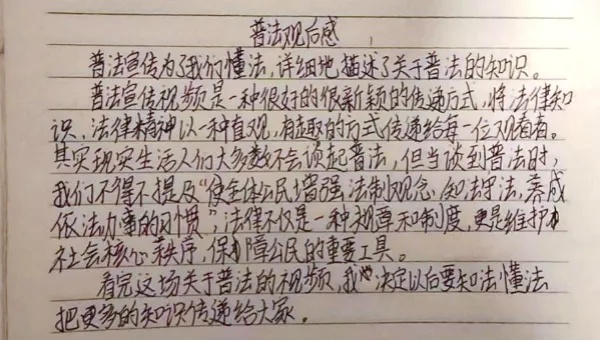 普法观后感
普法宣传为了我们懂法,详细地描述了关于普法的知识。
普法宣传视频是一种很好的很新颖的传递方式,将法律知
识、法律精神以一种直观,有趣的方式传递给每一位观看者。
其实现实生活人们大多数不会谈起普法,但当谈到普法时,
我们不得不提及“使全体公民增强法制观念,知法守法,养成
依法办事的习惯”,法律不仅是一种规章和制度,更是维护
社会核心秩序,保障公民的重要工具。
看完这场关于普法的视频,我也决定以后要知法懂法
把更多的知识传递给大家。